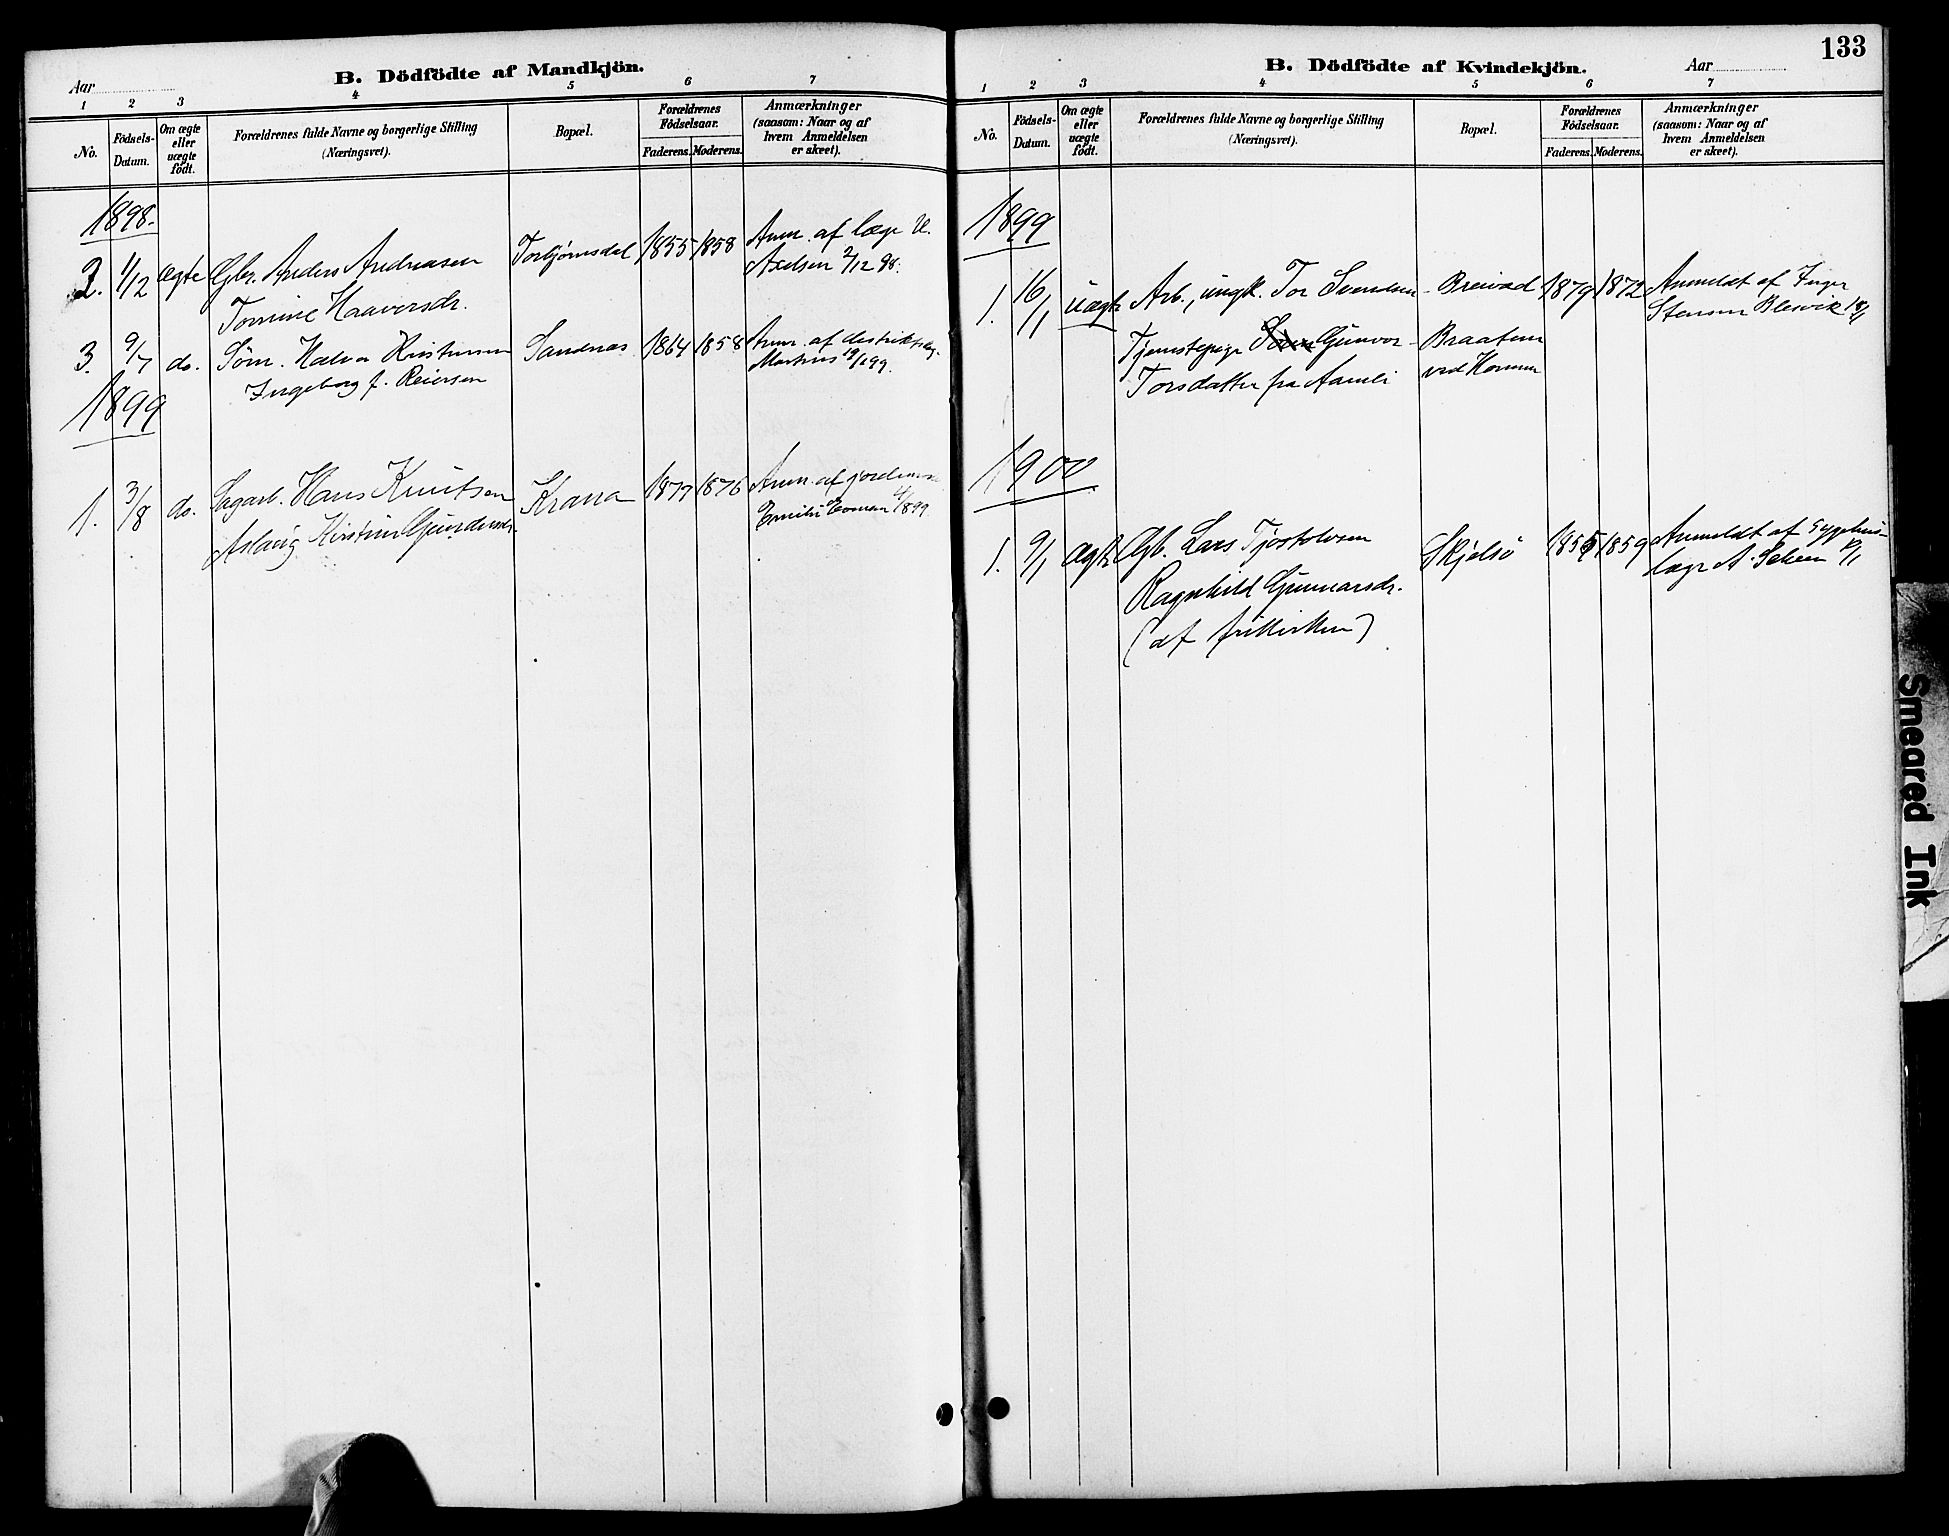 133
B. Dödfödte af Mandkjön.
Aar
1 2 3 4 5 6 7
No.
Födsels-
Datum.
Om ægte
eller
uægte
födt.
Forældrenes fulde Navne og borgerlige Stilling
(Næringsvei).
Bopæl.
Forældrenes
Födselsaar.
Faderens. Moderens.
Anmærkninger
(saasom: Naar og af
hvem Anmeldelsen
er skeet).
1898.
2. 1/12 ægte Gbr. Anders Andreasen Torbjørnsdal 1855 1858 Anm. af læge
Tomine Haaversdr. Axelsen 2/12 98.
3. 9/7 do. Søm. Halvor Kristensen Sandnæs 1864 1858 Anm. af distriktslæg.
Ingeborg f. Reiersen
1899
1. 3/8 do. Sagarb. Hans Knutsen Krana 1877 1876 Anm. af jordemor
Aslaug Kirstine
B. Dödfödte af Kvindekjön.
Aar
1 2 3 4 5 6 7
No.
Födsels-
Datum.
Om ægte
eller
uægte
födt.
Forældrenes fulde Navne og borgerlige Stilling
(Næringsvei).
Bopæl.
Forældrenes
Födselsaar.
Faderens. Moderens.
Anmærkninger
(saasom: Naar og af
hvem Anmeldelsen
er skeet).
1899
1. 16/1 uægte Arb., ungk. Tor Svendsen Breivad 1879 1872 Anmeldt af Inger
Stensen
Tjenstepige Gunvor Braaten
Torsdatter fra Aamli ved
1900
1. 9/1 ægte Gb. Lars Tjostolvsen Skjelsø 1855 1859 Anmeldt af sygehus-
Ragnhild Gunnarsdr. læge A.
(af frikirken)
Smeared Ink